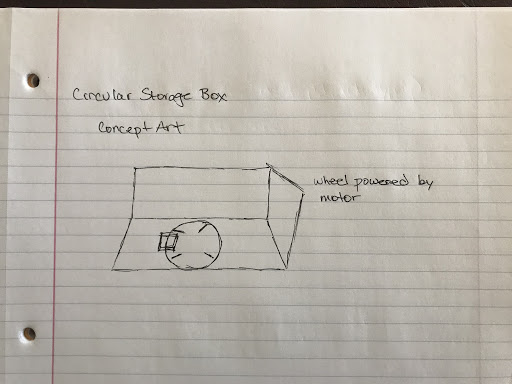 Circular Storage Box
Concept Art
wheel powered by
motor